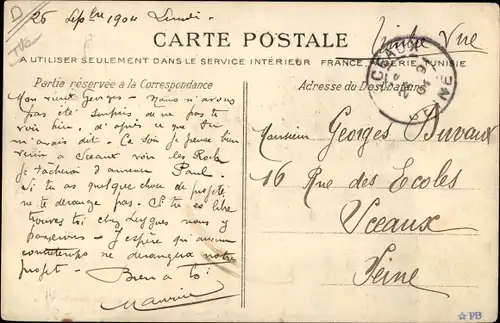 26 Septbre 1904 Lundi -
Timbre Vue
CARTE POSTALE
A UTILISER SEULEMENT DANS LE SERVICE INTÉRIEUR FRANCE, ALGÉRIE, TUNISIE
Partie réservée à la Correspondance
Adresse du Destinataire
SCEAUX
SEINE
Mon vieux Georges - Nous n'avons
pas été surpris de ne pas te
voir hier, d'après ce que tu
m'avais dit. Ce soir je pense bien
venir à Sceaux voir les
je tâcherai d'amener Paul.
Si tu as quelque chose de projeté
ne te dérange pas. Si tu es libre
trouves toi chez Leygues nous y
passerons - J'espère qu'aucun
contretemps ne dérangera notre
projet - Bien à toi
Maurice
Monsieur Georges Duvaux
16 Rue des Ecoles
Sceaux
Seine
PB